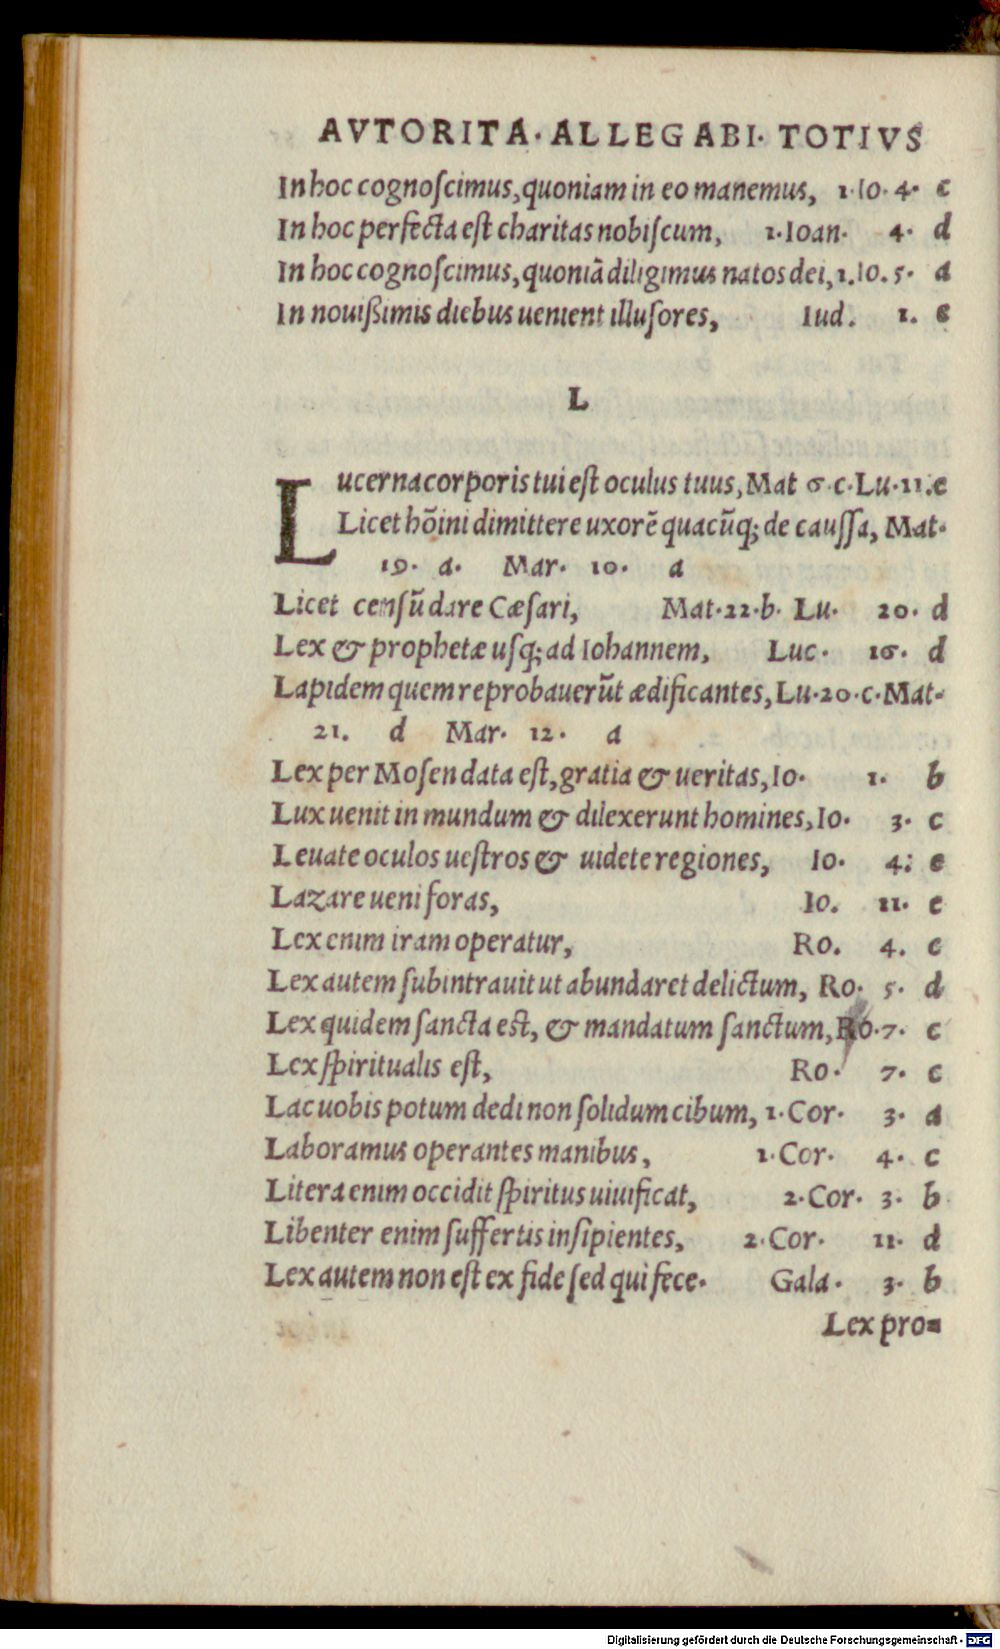 AVTORITA· ALLEGABI· TOTIVS
In hoc cognoſcimus, quoniam in eo manemus, 1·Io· 4· c
In hoc perfecta eſt charitas nobiſcum, 1·Ioan· 4· d
In hoc cognoſcimus, quoniā diligimus natos dei, 1.Io. 5· a
In nouißimis diebus uenient illuſores, Iud. 1. c
L
Lucerna corporis tui eſt oculus tuus, Mat 6·c·Lu·11.e
Licet hōini dimittere uxorē quacūq; de cauſſa, Mat·
19· a· Mar· 10· a
Licet cenſū dare Cæſari, Mat·22·b· Lu· 20· d
Lex & prophetæ uſq; ad Iohannem, Luc· 16· d
Lapidem quem reprobauerūt ædificantes, Lu·20·c·Mat·
21. d Mar· 12· a
Lex per Moſen data eſt, gratia & ueritas, Io· 1· b
Lux uenit in mundum & dilexerunt homines, Io· 3· c
Leuate oculos ueſtros & uidete regiones, Io· 4: e
Lazare ueni foras, Io. 11· e
Lex enim iram operatur, Ro. 4. c
Lex autem ſubintrauit ut abundaret delictum, Ro· 5· d
Lex quidem ſancta eſt, & mandatum ſanctum, Ro·7· c
Lex ſpiritualis eſt, Ro· 7· c
Lac uobis potum dedi non ſolidum cibum, 1·Cor· 3· a
Laboramus operantes manibus, 1·Cor· 4· c
Litera enim occidit ſpiritus uiuificat, 2·Cor· 3· b
Libenter enim ſuffertis inſipientes, 2·Cor· 11· d
Lex autem non eſt ex fide ſed qui fece· Gala· 3· b
Lex pro=
Digitalisierung gefördert durch die Deutsche Forschungsgemeinschaft - DFG